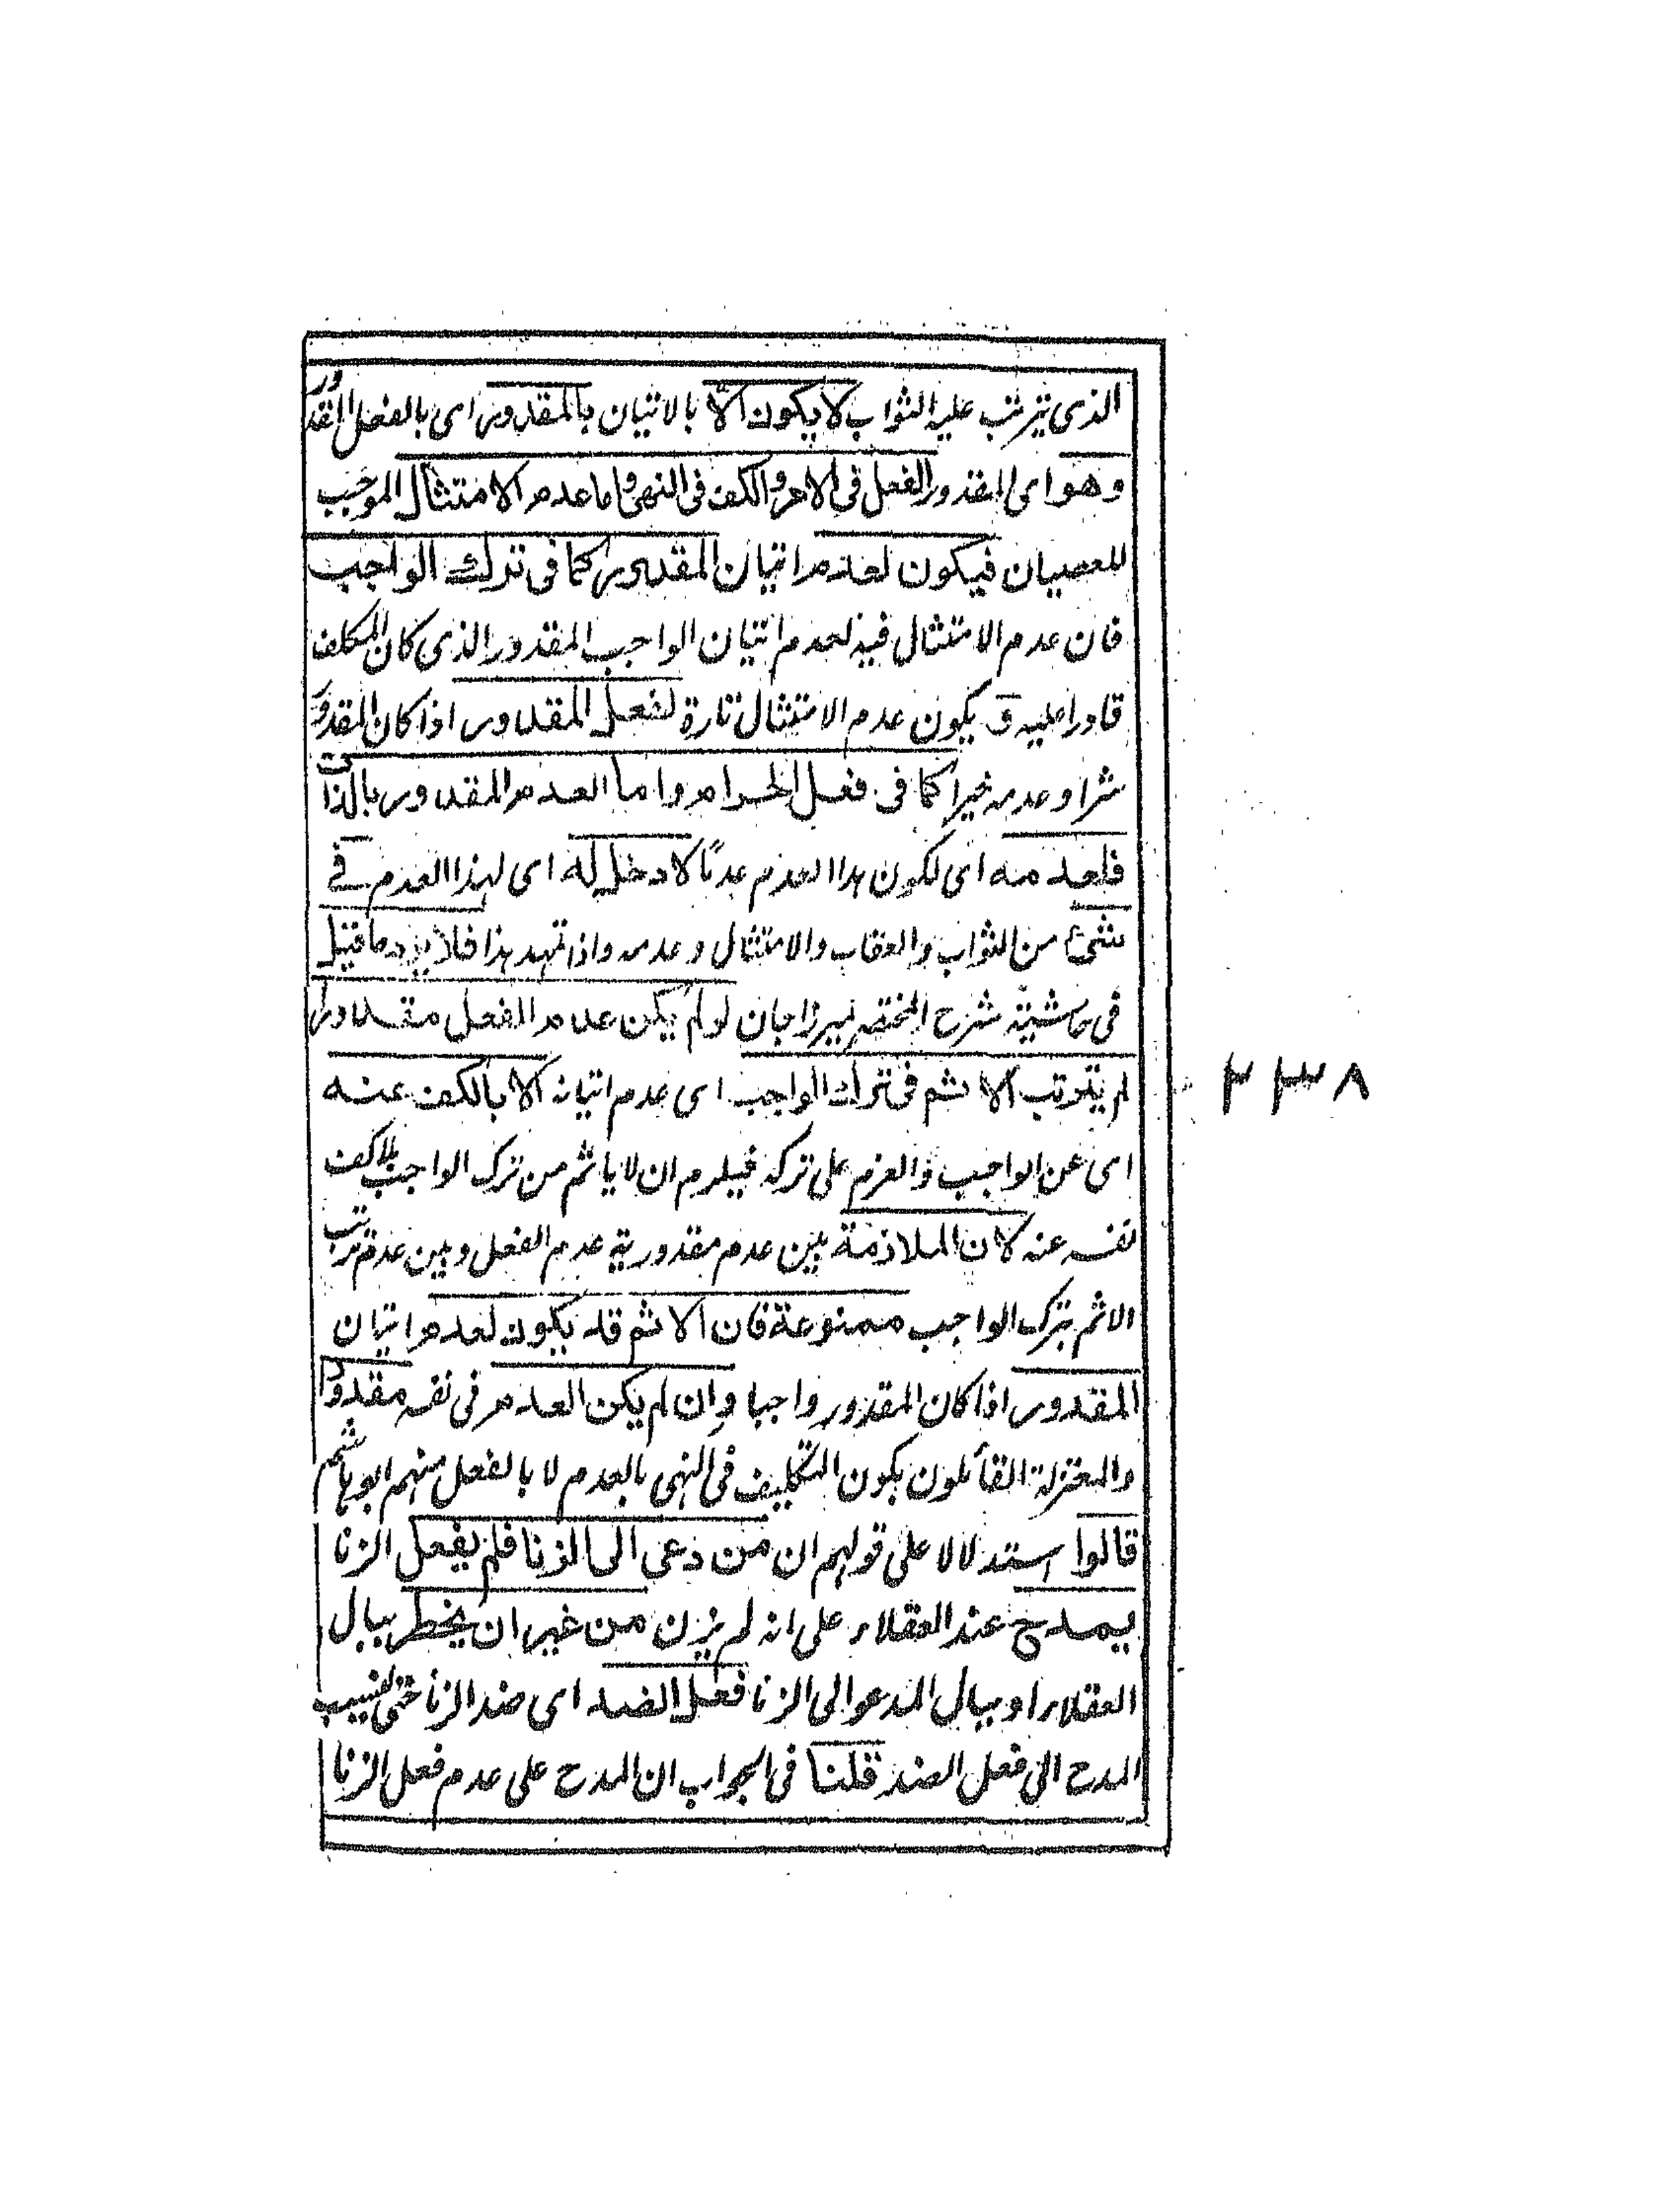 الذى يترتب عليه الثواب لا يكون الا بالاتيان بالمقدور اى بالفعل المقدور
وهو اى المقدور الفعل فى الامر والكف فى النهى واما عدم الامتثال الموجب
للعصيان فيكون لعدم اتيان المقدور كما فى ترك الواجب
فان عدم الامتثال فيه لعدم اتيان الواجب المقدور الذى كان المكلف
قادرا عليه وقد يكون عدم الامتثال تارة لفعل المقدور اذا كان المقدور
شرا وعدمه خيرا كما فى فعل الحرام واما العدم المقدور بالذات
فلعدمه اى لكون هذا العدم عدمًا لا دخل له اى لهذا العدم فے
شئ من الثواب والعقاب والامتثال وعدمه واذا تمهد هذا فلا يرد ما قيل
فى حاشية شرح المختصر لميرزاجان لو لم يكن عدم الفعل مقدورا
لم يترتب الاثم فى ترك الواجب اى عدم اتيانه الا بالكف عنه
اى عن الواجب والعزم على تركه فيلزم ان لا ياثم من ترك الواجب بلا كف
نفسه عنه لان الملازمة بين عدم مقدورية عدم الفعل وبين عدم ترتب
الاثم بترك الواجب ممنوعة فان الاثم قد يكون لعدم اتيان
المقدور اذا كان المقدور واجبا وان لم يكن العدم فى نفسه مقدورا
والمعتزلة القائلون بكون التكليف فى النهى بالعدم لا بالفعل منهم ابو هاشم
قالوا استدلالا على قولهم ان من دعى الى الزنا فلم يفعل الزنا
يمدح عند العقلاء على انه لم يزن من غير ان يخطر ببال
العقلاء او ببال المدعو الى الزنا فعل الضد اى ضد الزنا حتى ينسب
المدح الى فعل الضد قلنا فى الجواب ان المدح على عدم فعل الزنا
۲۳۸